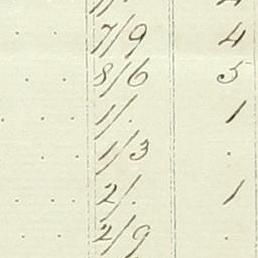 7/9 4
8/6 5
1/. 1
1/3 .
2/. 1
2/9 .